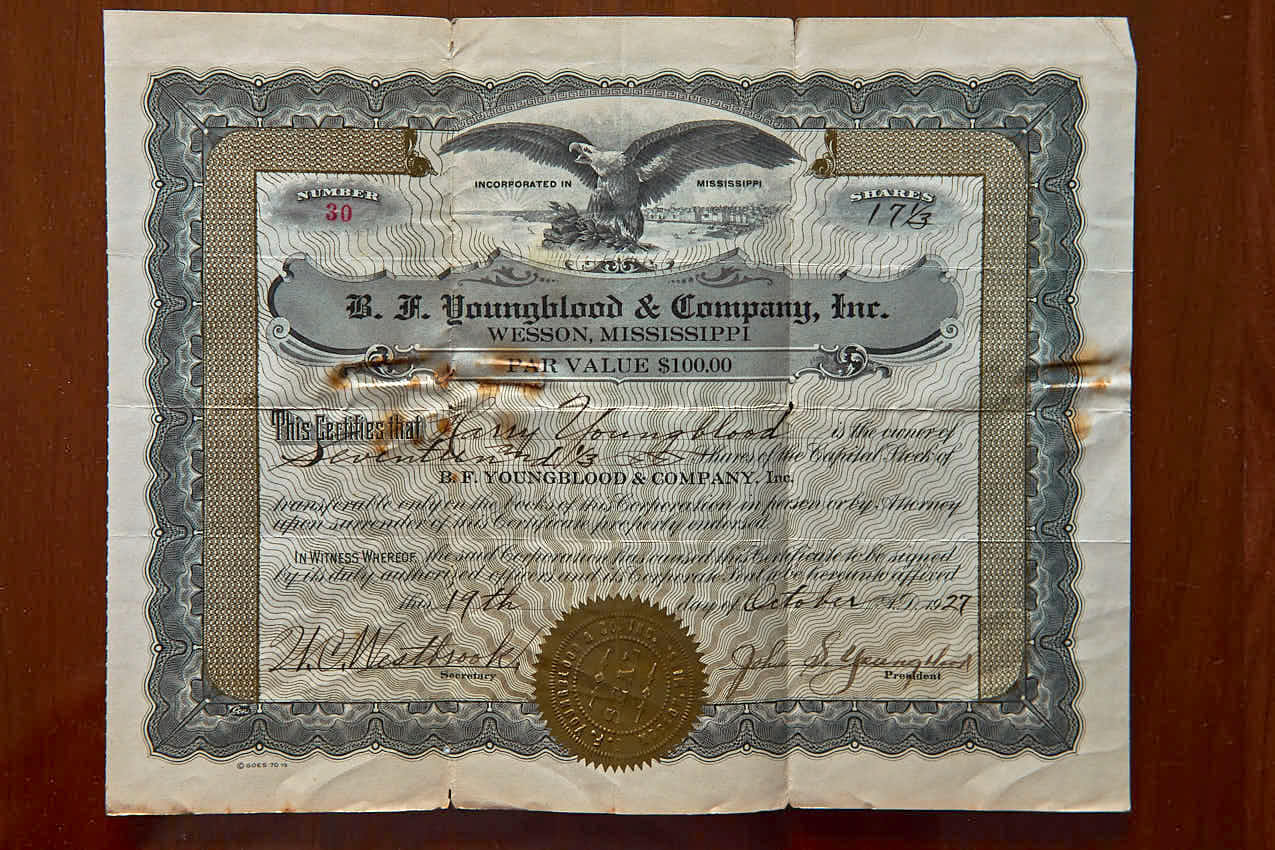 NUMBER
30
INCORPORATED IN MISSISSIPPI
SHARES
17 1/3
B. F. Youngblood & Company, Inc.
WESSON, MISSISSIPPI
PAR VALUE $100.00
This Certifies that Harry Youngblood is the owner of
Seventeen & 1/3 Shares of the Capital Stock of
B. F. YOUNGBLOOD & COMPANY, Inc.
transferable only on the books of this Corporation in person or by Attorney
upon surrender of this Certificate properly endorsed.
IN WITNESS WHEREOF, the said Corporation has caused this Certificate to be signed
by its duly authorized officers and its Corporate Seal to be hereunto affixed
this 19th day of October A.D. 1927
H. C. Westbrook,
Secretary
John S. Youngblood
President
© GOES